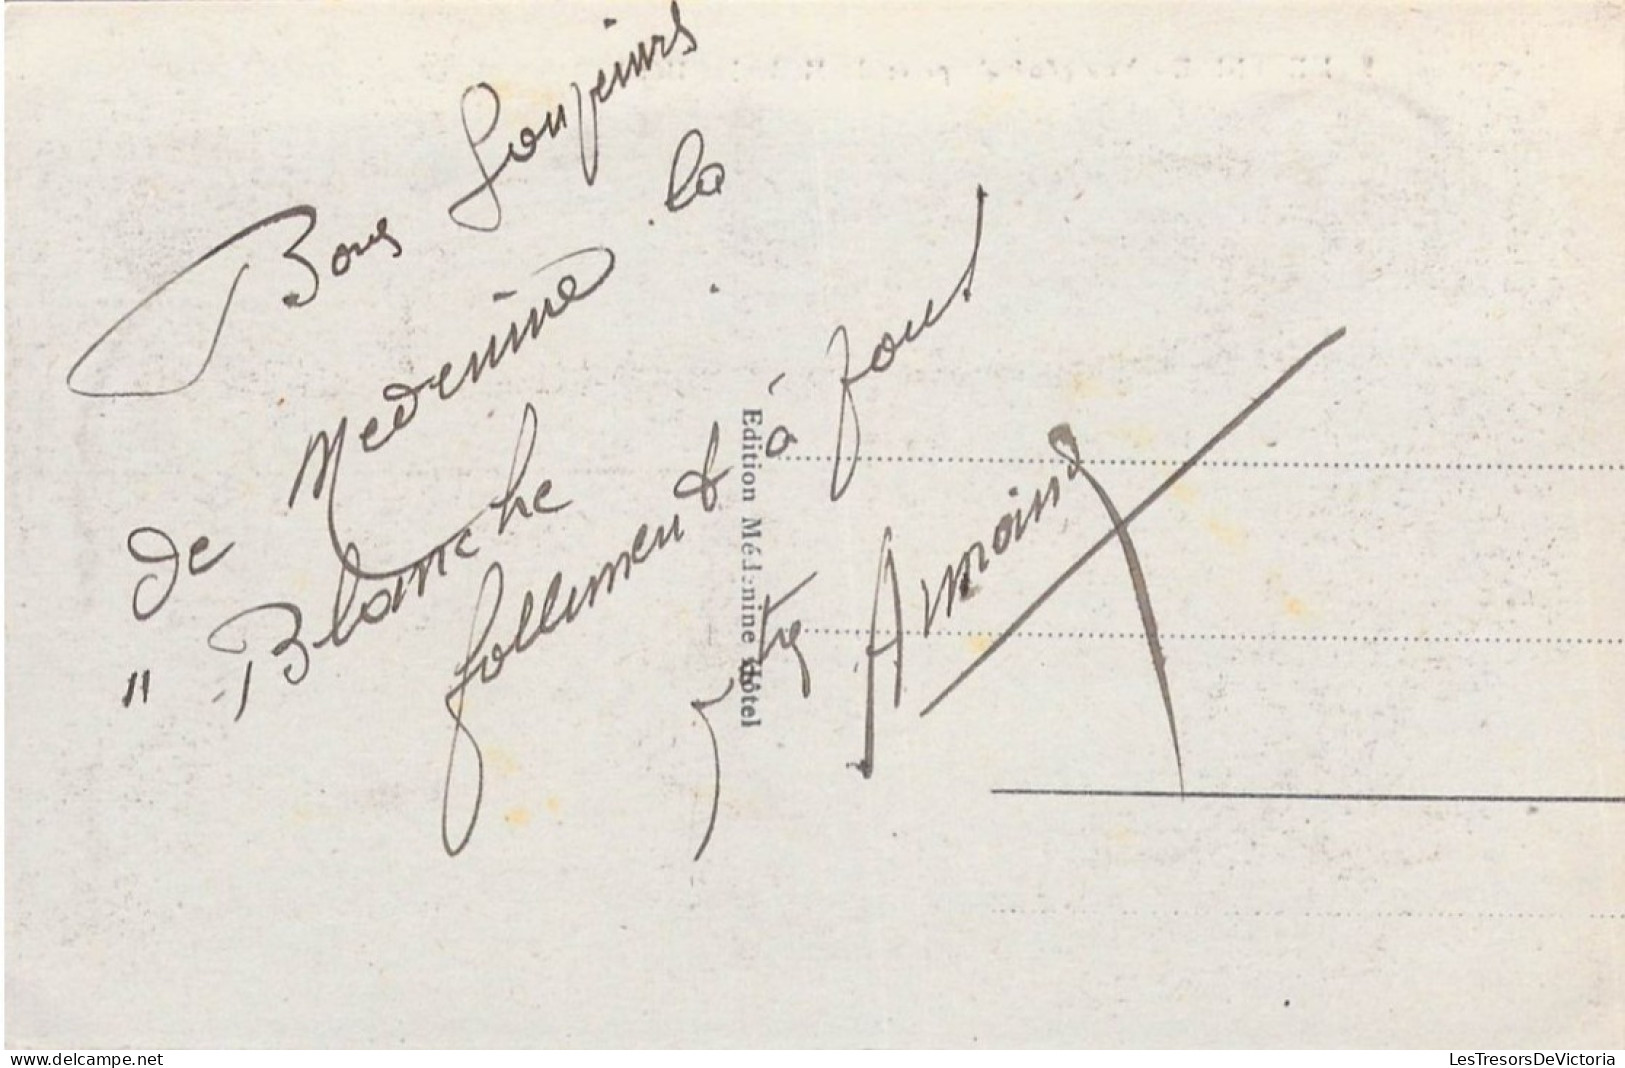 Bons Souvenirs
de Medenine la
"Blanche
follement à
Edition Médenine Hôtel
www.delcampe.net
LesTresorsDeVictoria